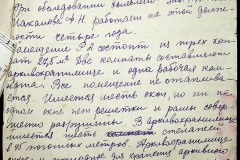 При обследовании
работает на этой долж-
ности четыре года
Помещение РА состоит из трех ком-
нат 27,5 м² Две комнаты составляют
архивохранилище и одна рабочая ком-
ната. Все помещение не отаплива
ется. Имеется шесть окон, но ни на
одном окне нет решетки и рамы совер-
шенно разрушены. В архивохранилище
имеется шесть стелажей
погонных метров. Архивохранилище
для хранения архивного